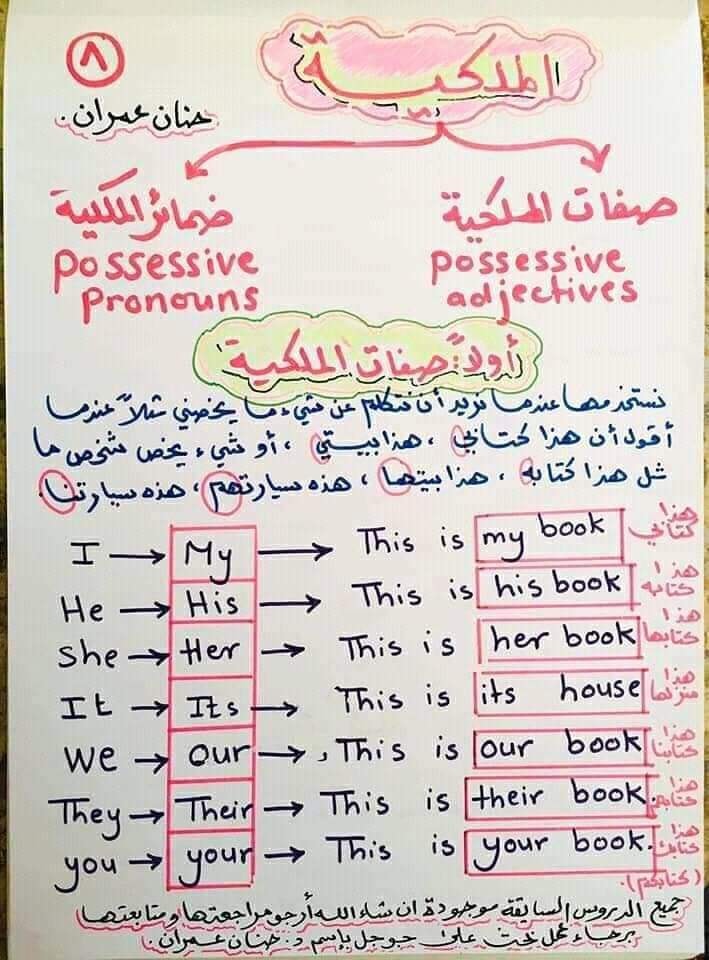 ٨
الملكية
حنان عمران.
صفات الملكية
possessive
adjectives
ضمائر الملكية
possessive
pronouns
أولاً: صفات الملكية
نستخدمها عندما نريد أن نتكلم عن شيء ما يخصني مثلاً عندما
أقول أن هذا كتابي ، هذا بيتي ، أو شيء يخص شخص ما
مثل هذا كتابه ، هذا بيتها ، هذه سيارتهم ، هذه سيارتنا.
I → My → This is my book هذا كتابي
He → His → This is his book هذا كتابه
She → Her → This is her book هذا كتابها
It → Its → This is its house هذا منزلها
We → our → This is our book هذا كتابنا
They → Their → This is their book. هذا كتابهم
you → your → This is your book. هذا كتابك
(كتابكم).
جميع الدروس السابقة موجودة ان شاء الله أرجو مراجعتها ومتابعتها
برجاء عمل بحث على جوجل بإسم د. حنان عمران.